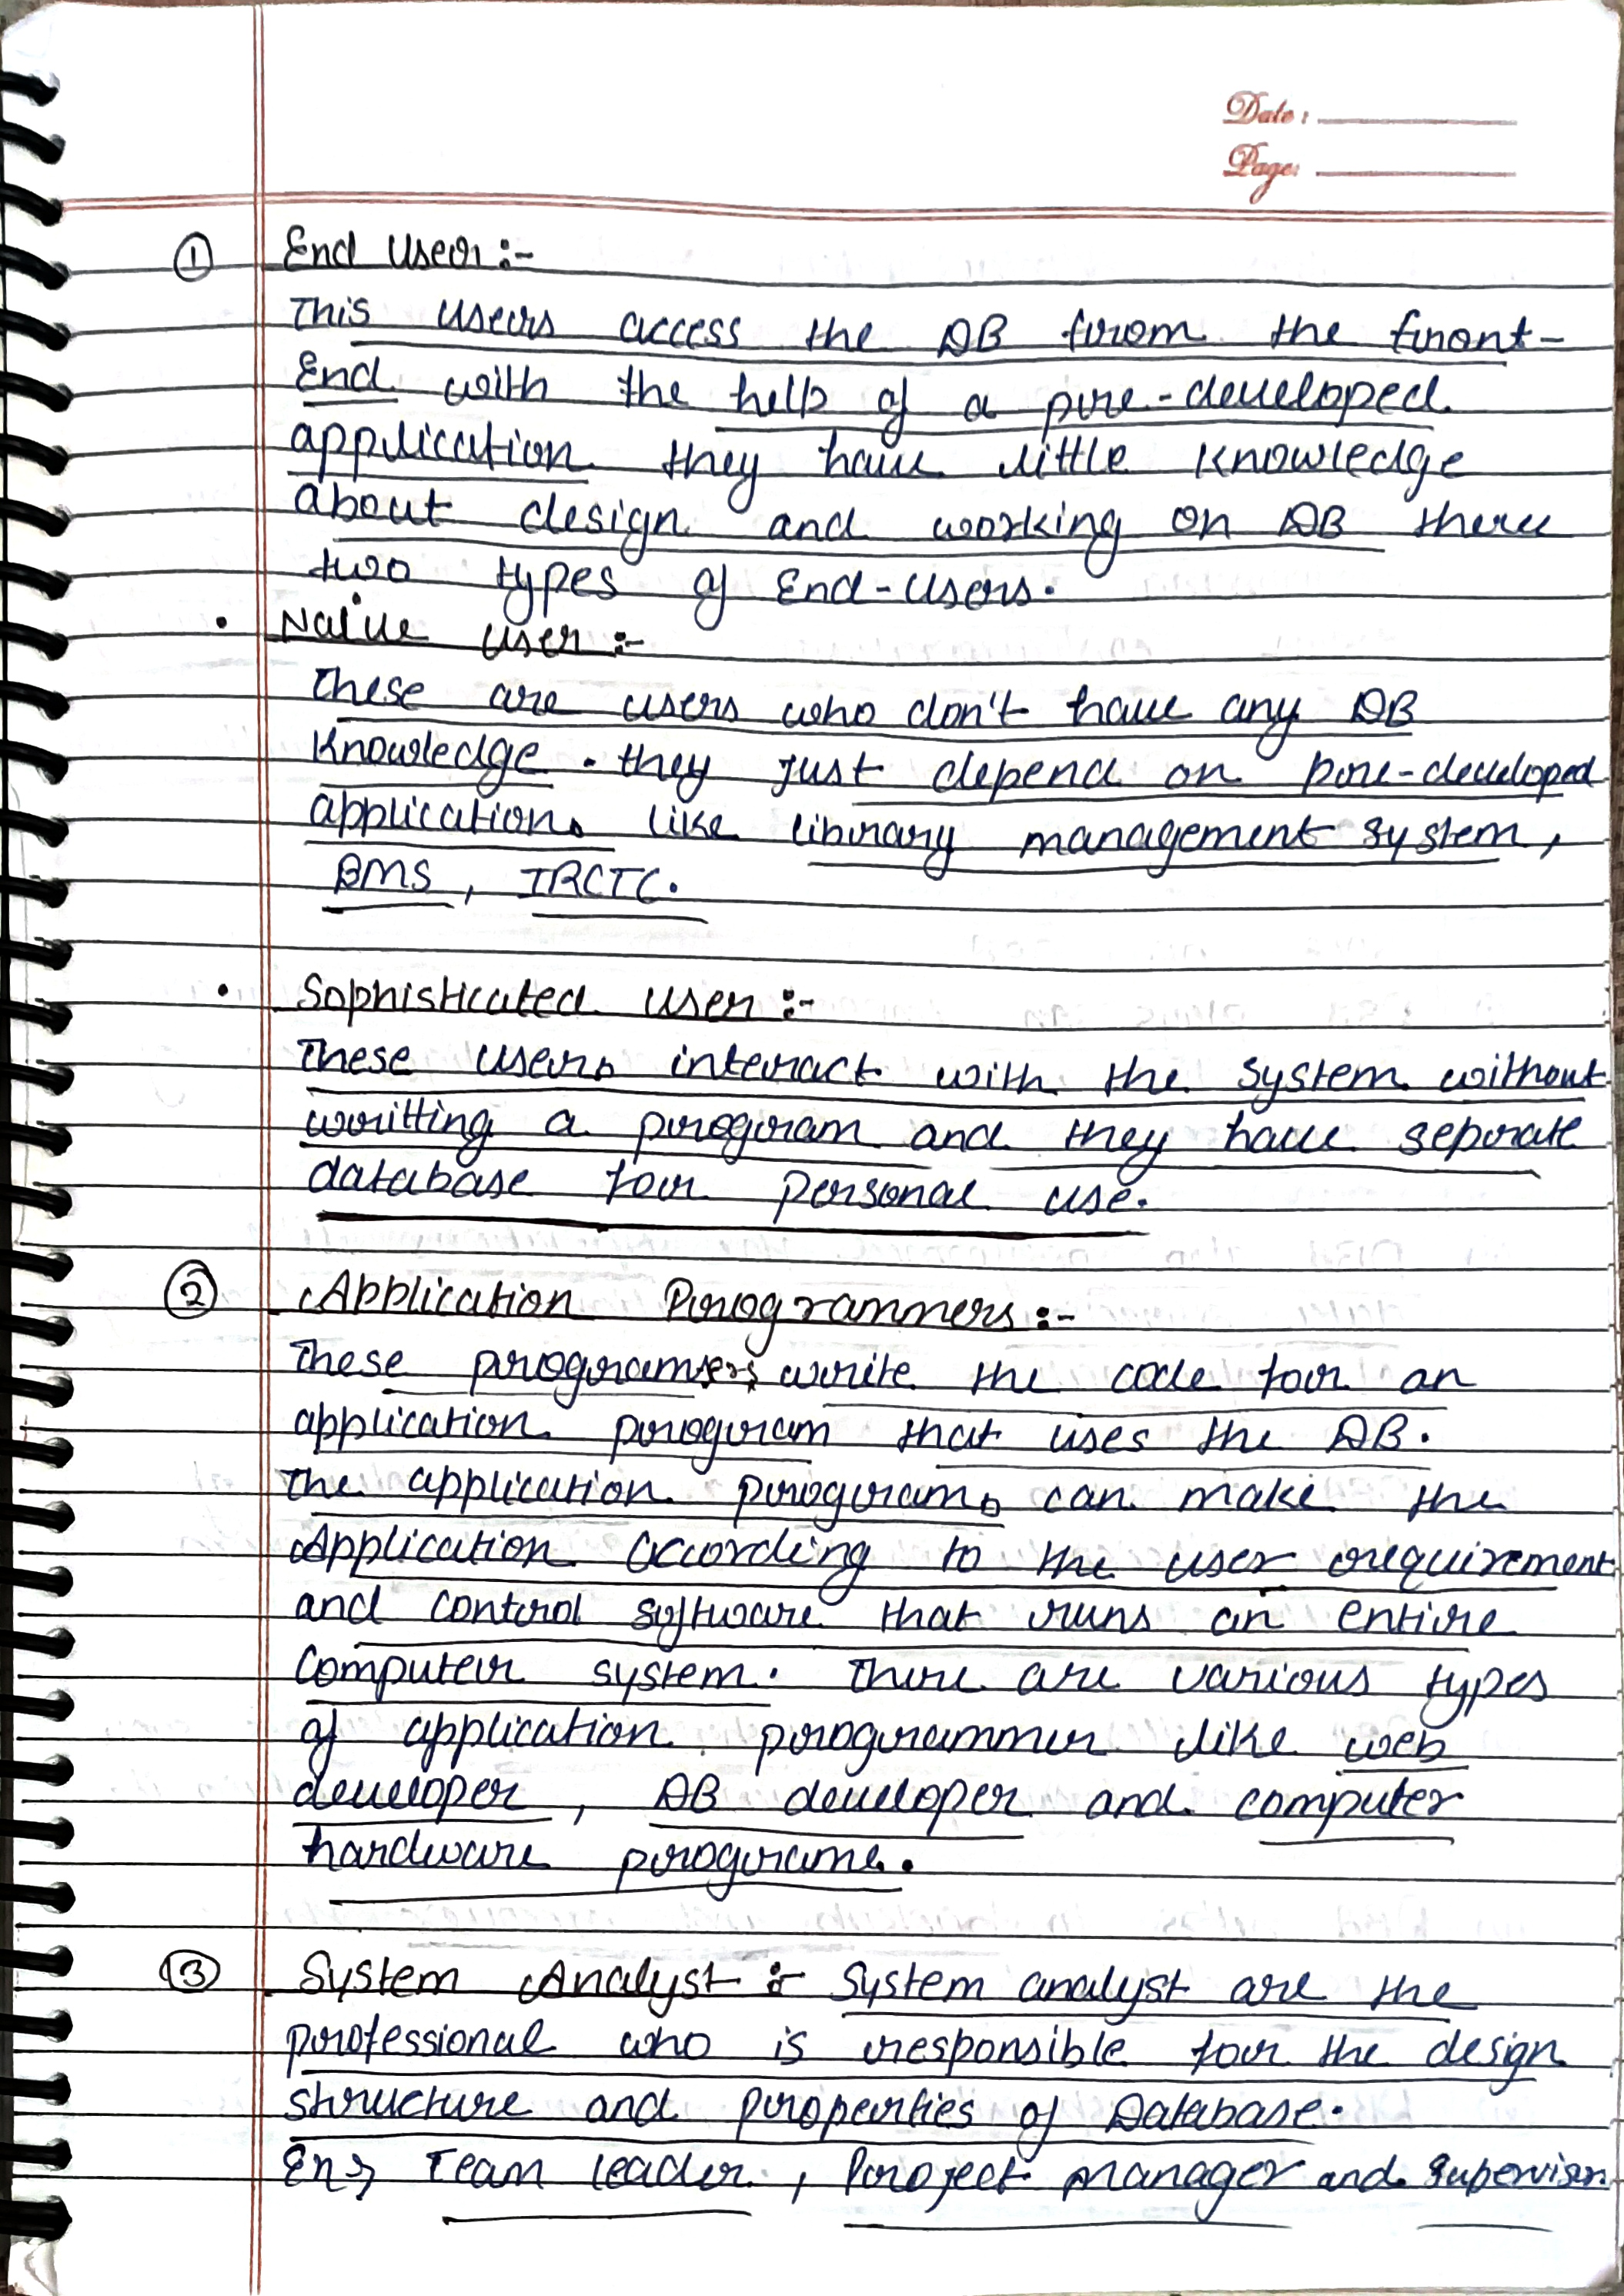 Date:
Page:
① End User:-
This users access the DB from the front-
End with the help of a pre-developed
application they have little knowledge
about design and working on DB there
two types of End-users.
• Naive user:-
These are users who don't have any DB
Knowledge. they just depend on pre-developed
applications like library management system,
BMS, IRCTC.
• Sophisticated user:-
These users interact with the system without
writting a program and they have seprate
database for personal use.
② Application Programmers:-
These programers write the code for an
application program that uses the DB.
The application programs can make the
Application according to the user requirement
and control software that runs an entire
Computer system. There are various types
of application programmer like web
developer, DB developer and computer
hardware programe.
③ System Analyst :- System analyst are the
professional who is responsible for the design
structure and properties of Database.
Ex→ Team leader, Project manager and Superviser.